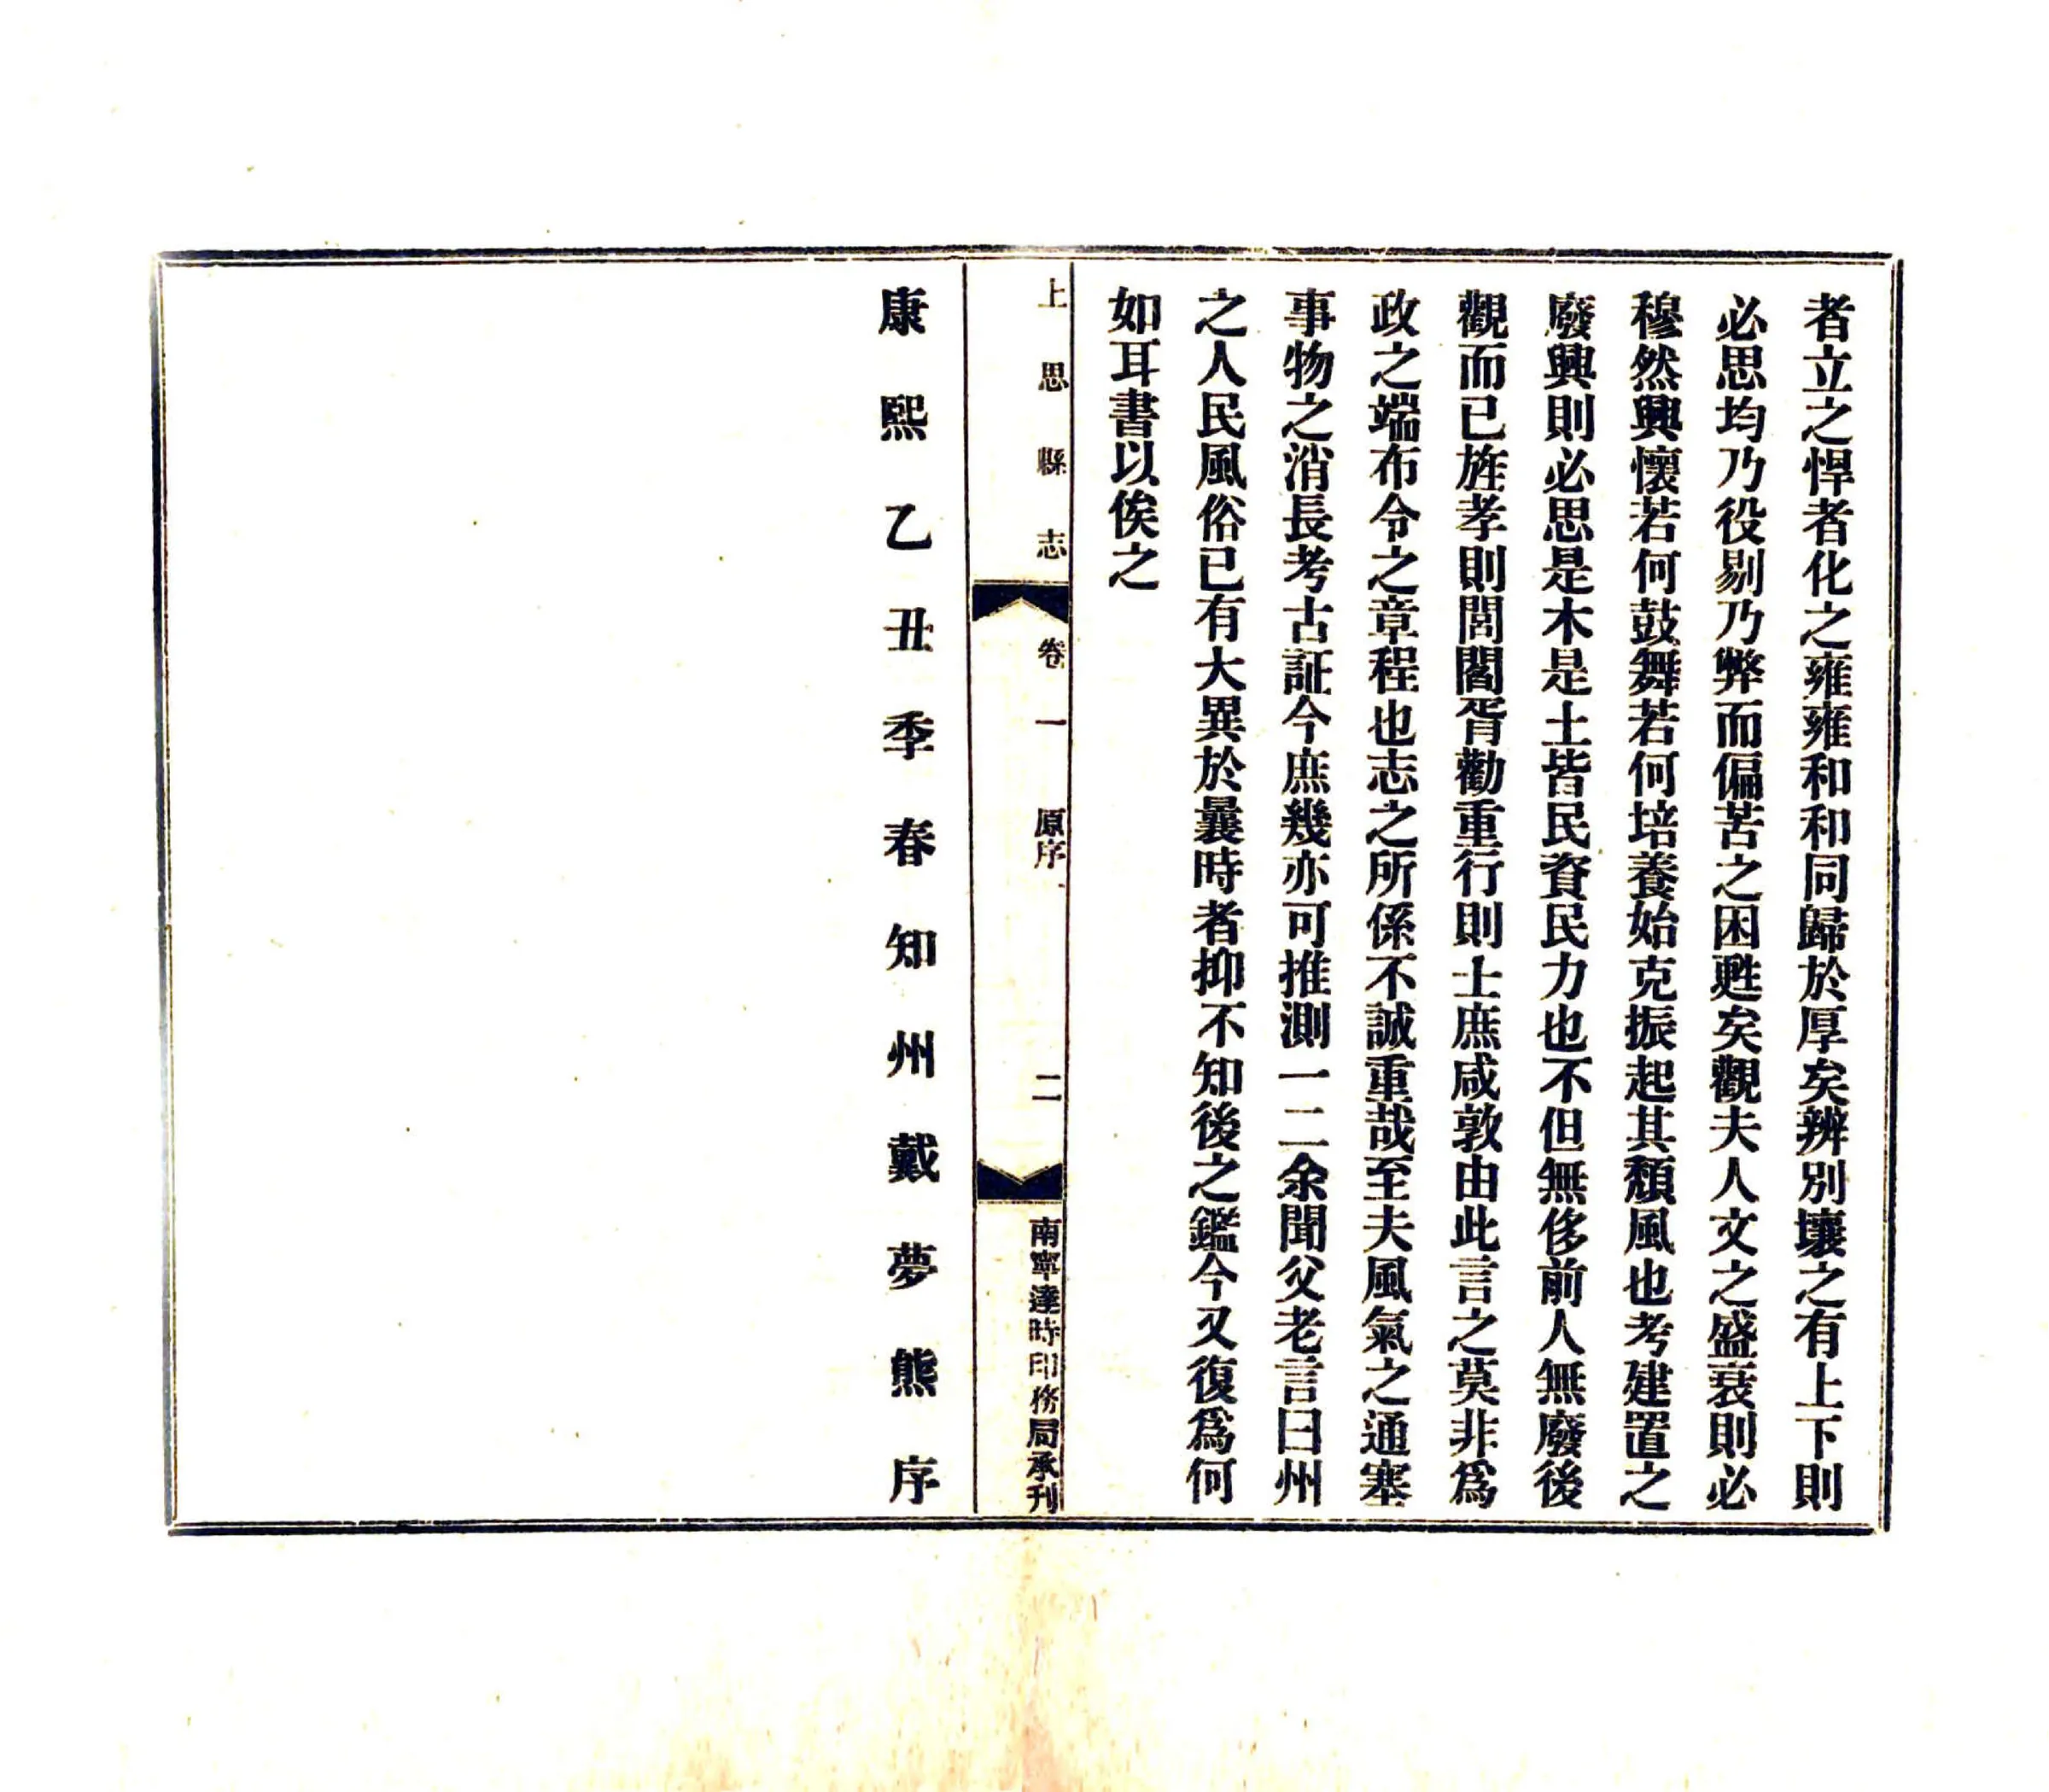 者立之悍者化之雍雍和和同歸於厚矣辨別壤之有上下則
必思均乃役剔乃弊而偏苦之困甦矣觀夫人文之盛衰則必
穆然興懷若何鼓舞若何培養始克振起其頹風也考建置之
廢興則必思是木是土皆民資民力也不但無侈前人無廢後
觀而已旌孝則閭閻胥勸重行則士庶咸敦由此言之莫非爲
政之端布令之章程也志之所係不誠重哉至夫風氣之通塞
事物之消長考古証今庶幾亦可推測一二余聞父老言曰州
之人民風俗已有大異於曩時者抑不知後之鑑今又復爲何
如耳書以俟之
上思縣志
卷一
原序
二
南寧達時印務局承刊
康熙乙丑季春知州戴夢熊序